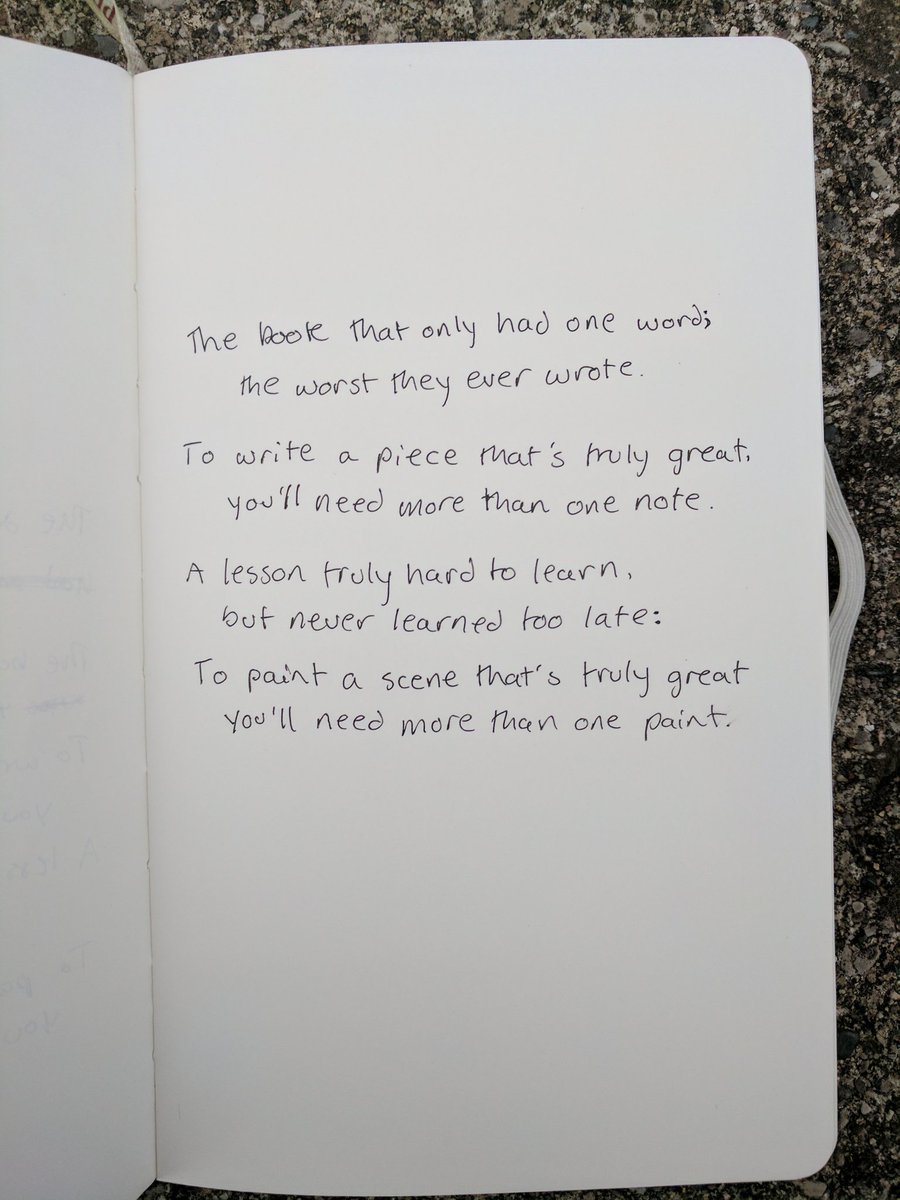 The book that only had one word;
the worst they ever wrote.
To write a piece that's truly great,
you'll need more than one note.
A lesson truly hard to learn,
but never learned too late:
To paint a scene that's truly great
you'll need more than one paint.